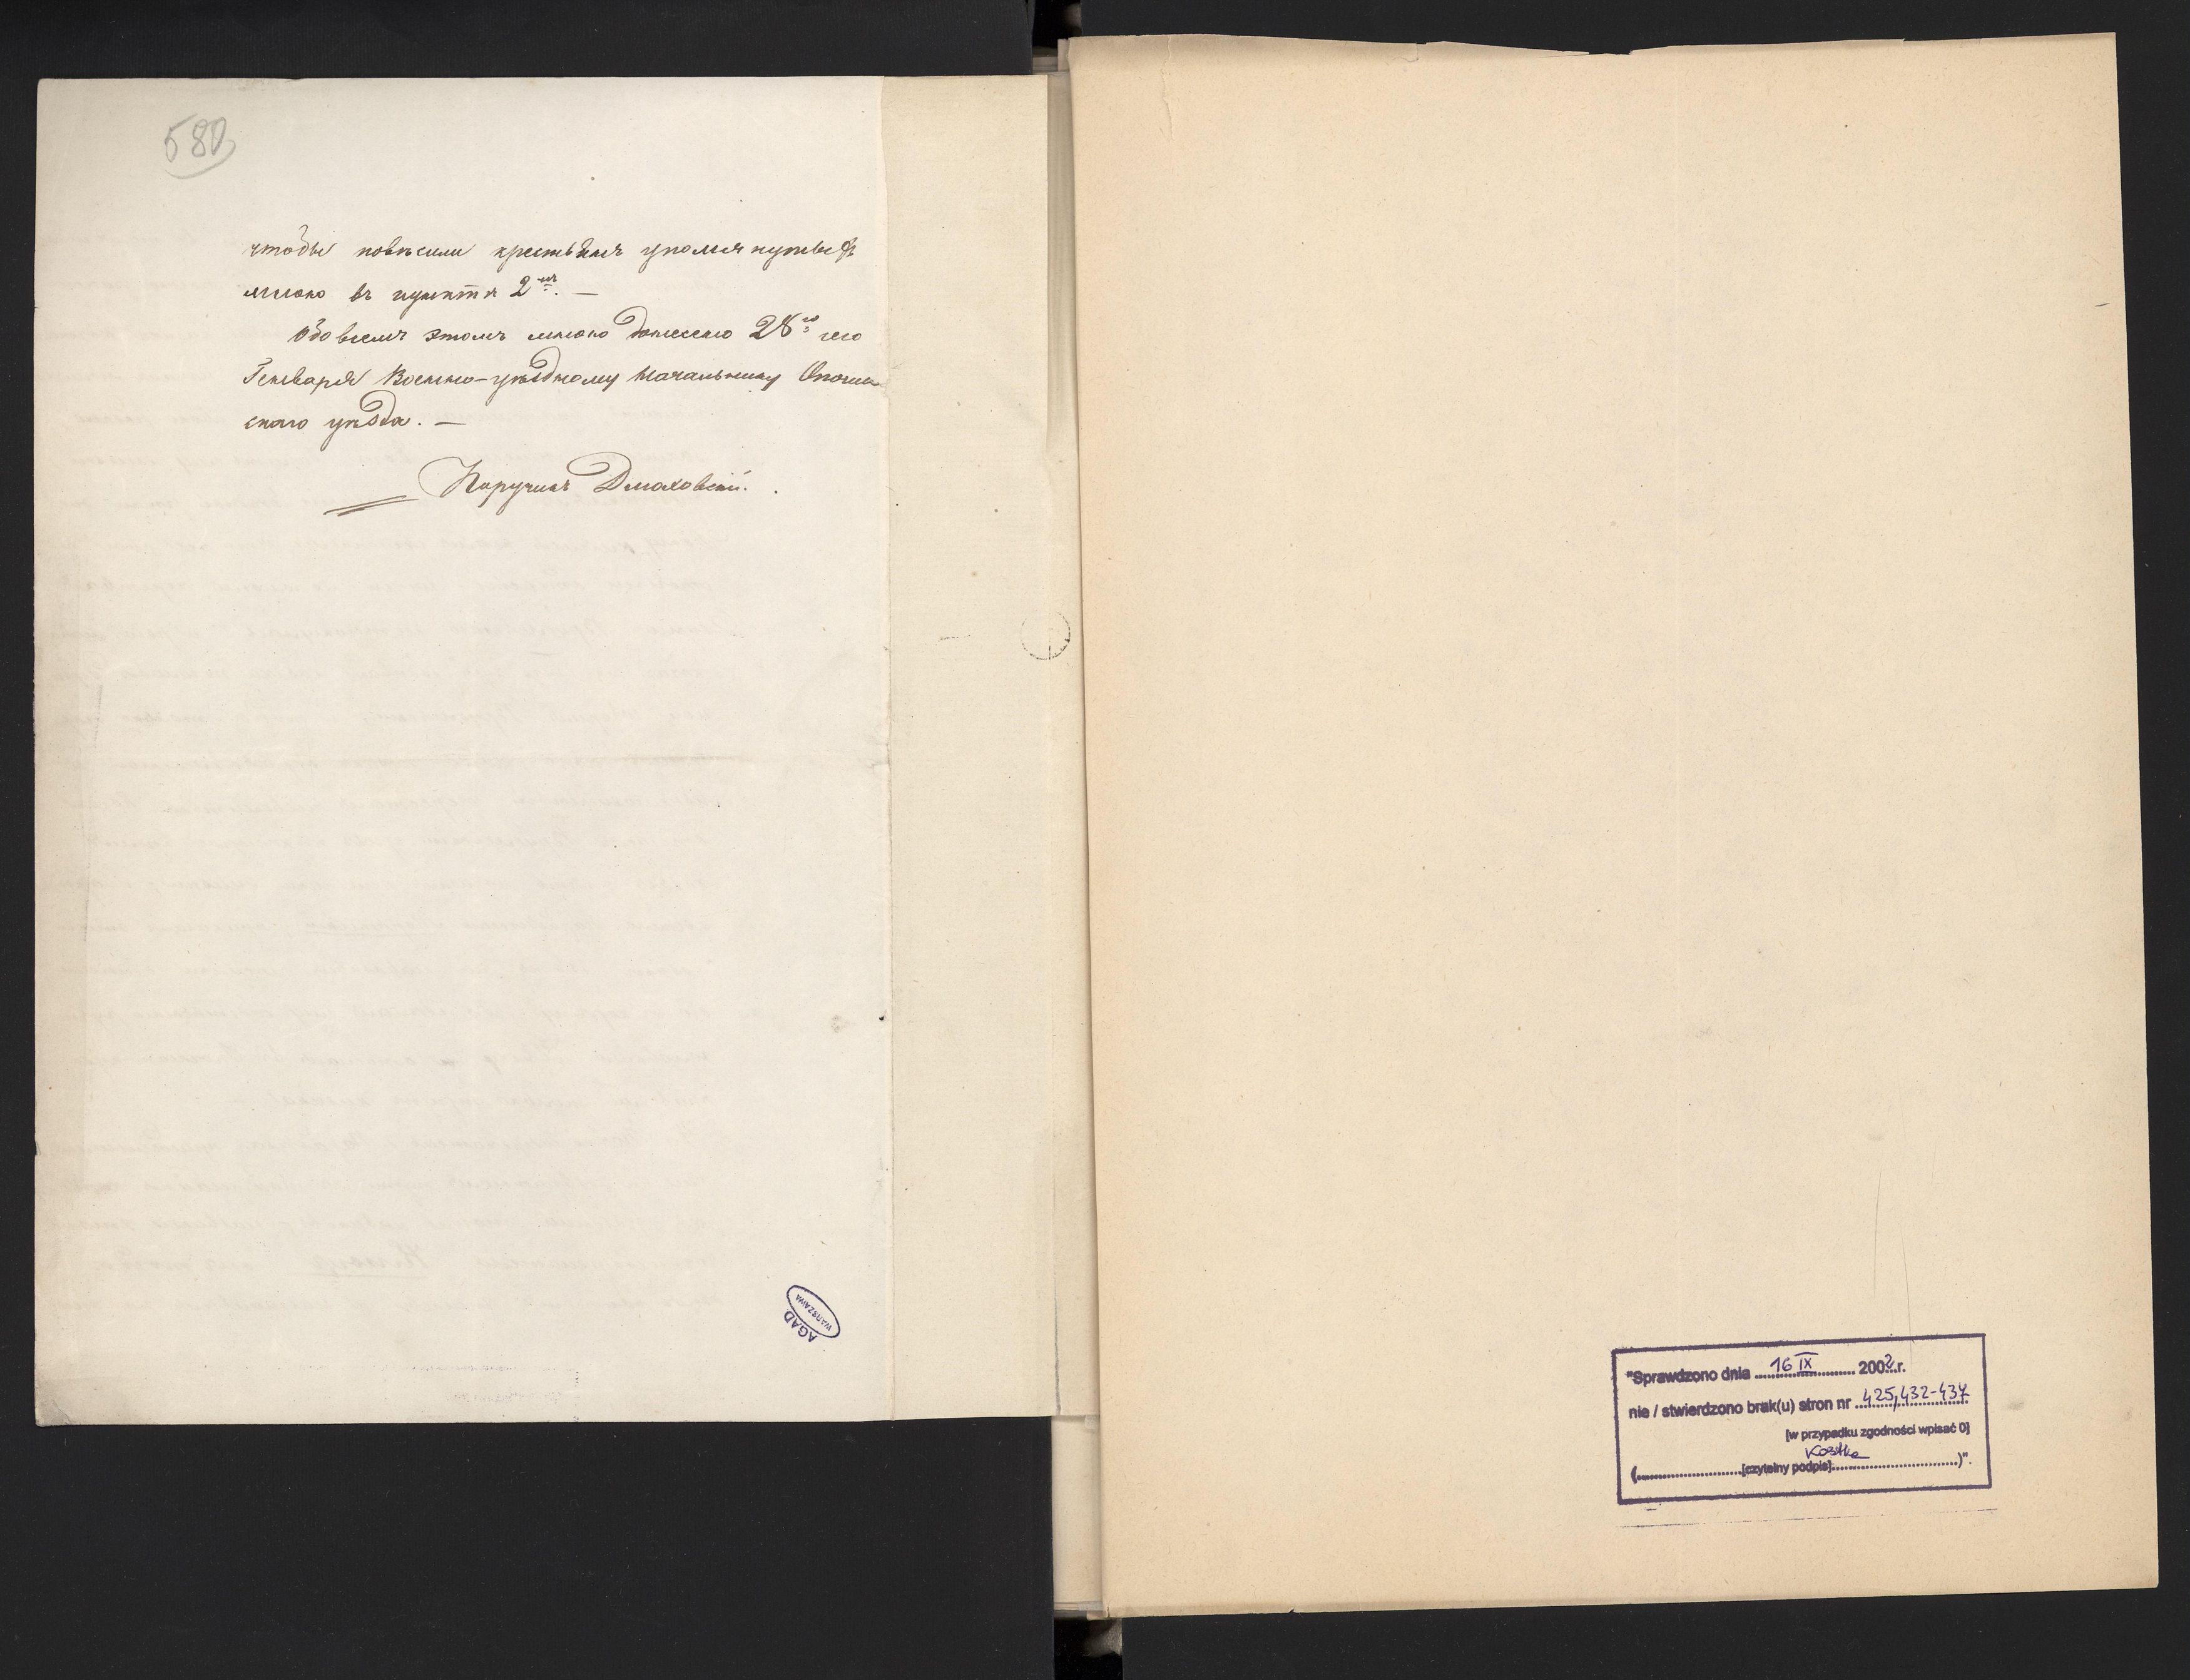 580
чтобы повѣсили крестьянъ упомянутыхъ
мною въ пунктѣ 2мъ. —
Обо всемъ этомъ мною донесено 28го сего
Генваря Военно-уѣздному Начальнику Опочин
скаго уѣзда. —
Поручикъ Дмаховскій.
AGAD
WARSZAWA
"Sprawdzono dnia 16 IX 2002 r.
nie / stwierdzono brak(u) stron nr 425, 432-437
[w przypadku zgodności wpisać 0]
Kostka
(..........[czytelny podpis]..........)".